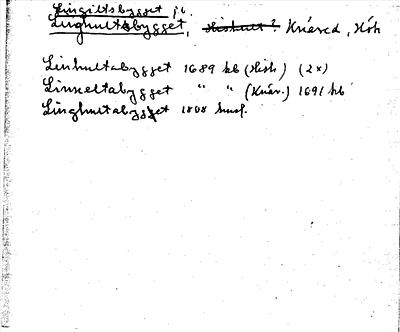 Lingiltsbygget jb.
Linghultsbygget, Hishult? Knäred, Hök
Linhultabygget 1689 hb (Hish) (2x)
Linneltabygget " " (Knär.) 1691 hb
Linghultabygget 1808